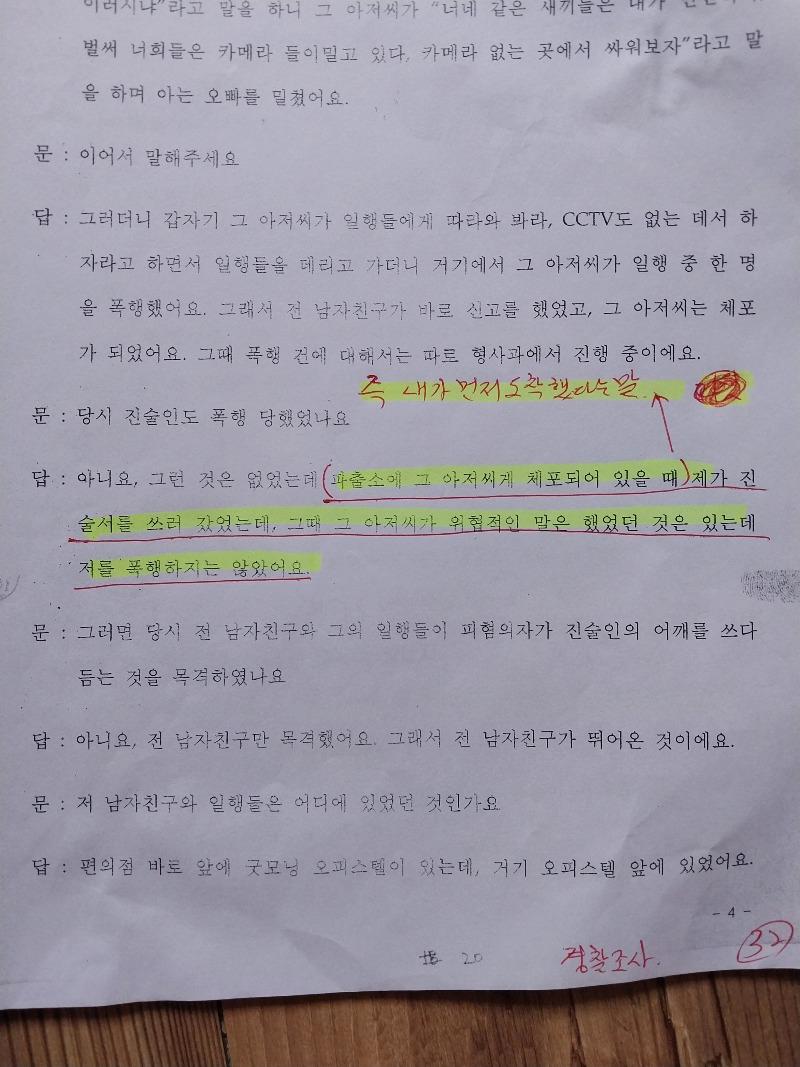 이러시냐”라고 말을 하니 그 아저씨가 “너네 같은 새끼들은 내가
벌써 너희들은 카메라 들이밀고 있다, 카메라 없는 곳에서 싸워보자”라고 말
을 하며 아는 오빠를 밀쳤어요.
문 : 이어서 말해주세요
답 : 그러더니 갑자기 그 아저씨가 일행들에게 따라와 봐라, CCTV도 없는 데서 하
자라고 하면서 일행들을 데리고 가더니 거기에서 그 아저씨가 일행 중 한 명
을 폭행했어요. 그래서 전 남자친구가 바로 신고를 했었고, 그 아저씨는 체포
가 되었어요. 그때 폭행 건에 대해서는 따로 형사과에서 진행 중이에요.
즉 내가 먼저 도착했다는 말.
문 : 당시 진술인도 폭행 당했었나요
답 : 아니요, 그런 것은 없었는데 (파출소에 그 아저씨께 체포되어 있을 때) 제가 진
술서를 쓰러 갔었는데, 그때 그 아저씨가 위협적인 말은 했었던 것은 있는데
저를 폭행하지는 않았어요.
문 : 그러면 당시 전 남자친구와 그의 일행들이 피혐의자가 진술인의 어깨를 쓰다
듬는 것을 목격하였나요
답 : 아니요, 전 남자친구만 목격했어요. 그래서 전 남자친구가 뛰어온 것이에요.
문 : 저 남자친구와 일행들은 어디에 있었던 것인가요
답 : 편의점 바로 앞에 굿모닝 오피스텔이 있는데, 거기 오피스텔 앞에 있었어요.
- 4 -
20 경찰조사. 32